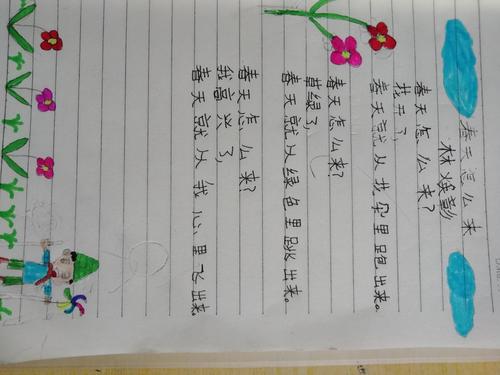 春天怎么来
林焕彰
春天怎么来?
花开了,
春天就从花朵里跑出来。
春天怎么来?
草绿了,
春天就从绿色里跳出来。
春天怎么来?
我高兴了,
春天就从我心里飞出来